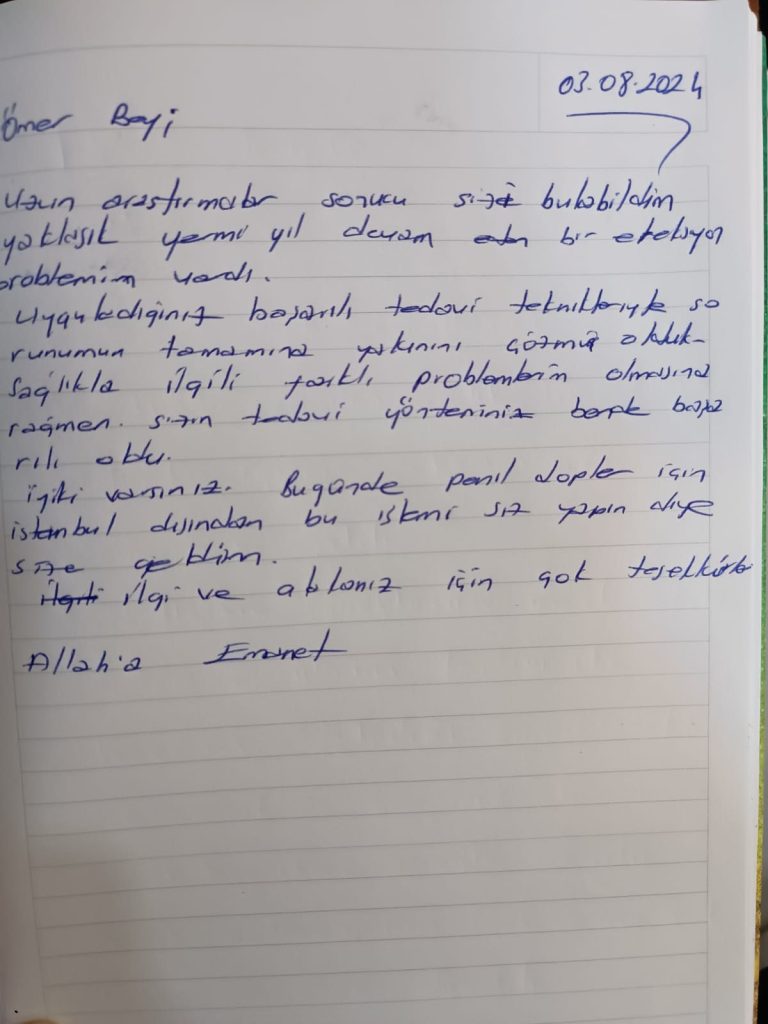 03.08.2024
Ömer Beyi
Uzun araştırmalar sonucu sizi bulabildim
yaklaşık yirmi yıl devam eden bir ereksiyon
problemim vardı.
Uyguladığınız başarılı tedavi teknikleriyle so
runumun tamamına yakınını çözmüş olduk-
Sağlıkla ilgili farklı problemlerin olmasına
rağmen. sizin tedavi yönteminiz başa
rılı oldu.
iyiki varsınız. Bugünde penil dopler için
istanbul dışından bu işlemi siz yapın diye
size geldim.
ilgi ve alakanız için çok teşekkürler
Allah'a Emanet